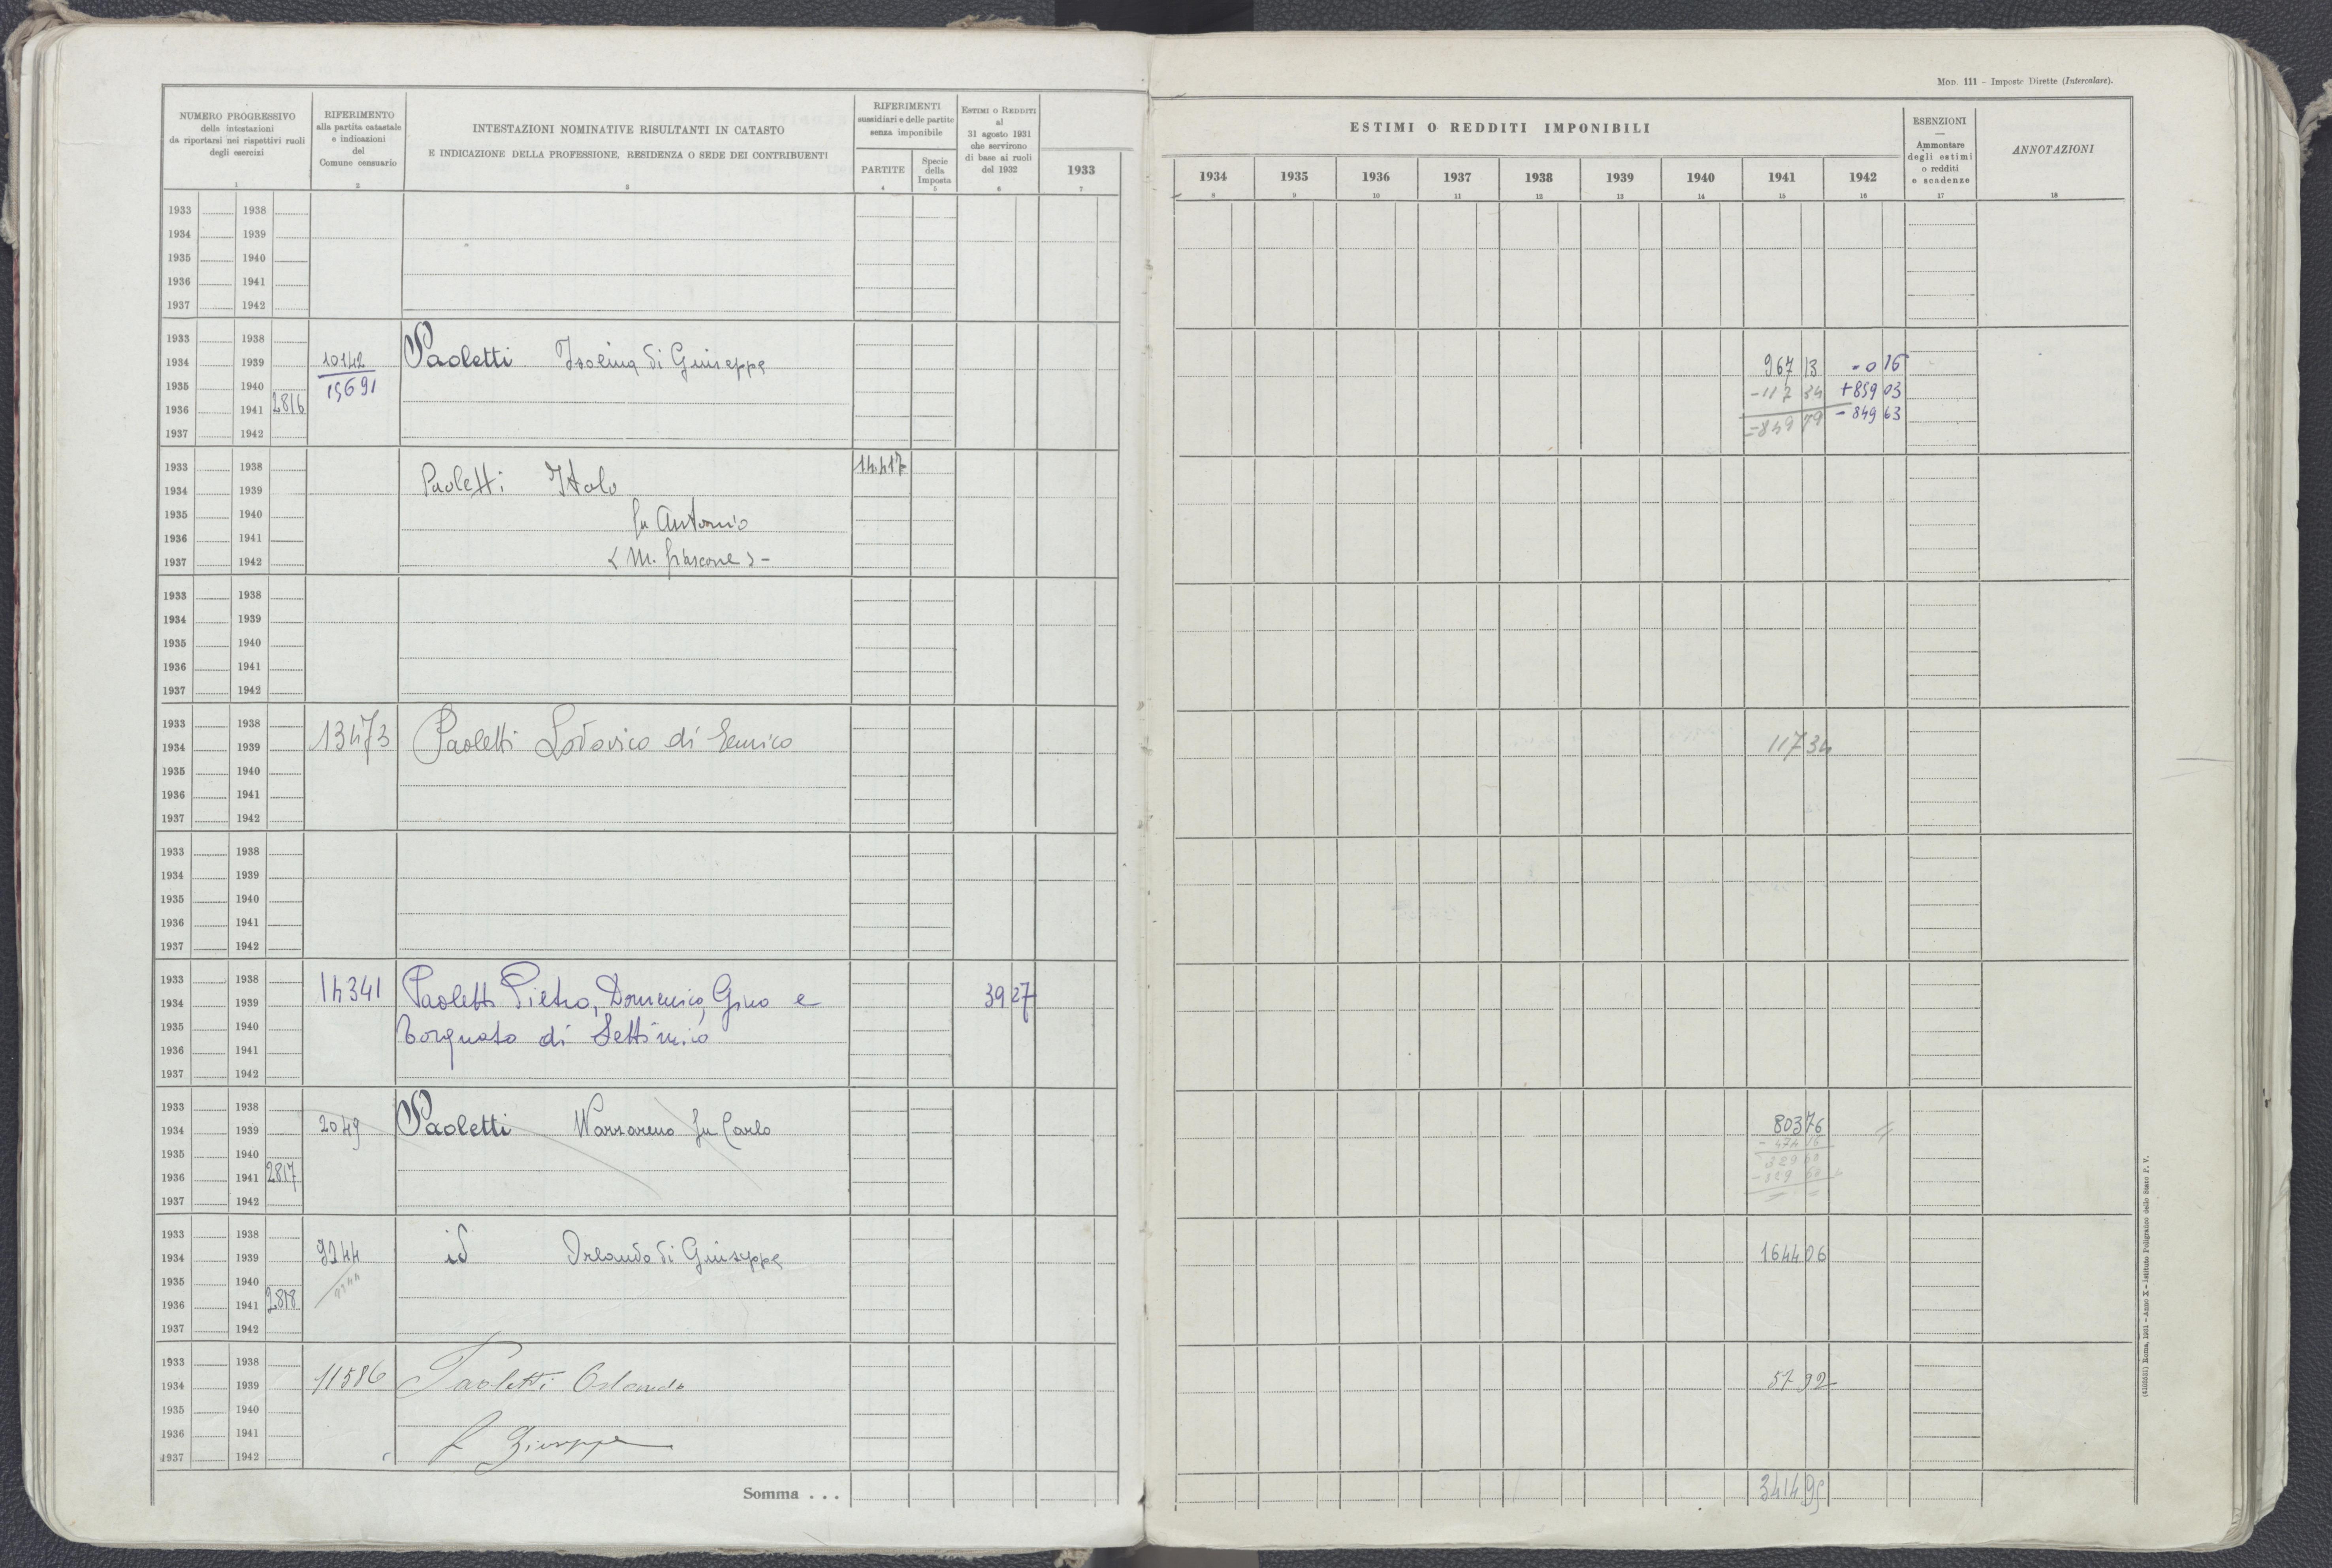 Mod. 111 – Imposte Dirette (Intercalare).
NUMERO PROGRESSIVO
delle intestazioni
da riportarsi nei rispettivi ruoli
degli esercizi
1
RIFERIMENTO
alla partita catastale
e indicazioni
del
Comune censuario
2
INTESTAZIONI NOMINATIVE RISULTANTI IN CATASTO
E INDICAZIONE DELLA PROFESSIONE, RESIDENZA O SEDE DEI CONTRIBUENTI
3
RIFERIMENTI
sussidiari e delle partite
senza imponibile
PARTITE
4
Specie
della
Imposta
5
Estimi o Redditi
al
31 agosto 1931
che servirono
di base ai ruoli
del 1932
6
1933
7
ESTIMI O REDDITI IMPONIBILI
1934 1935 1936 1937 1938 1939 1940 1941 1942
8 9 10 11 12 13 14 15 16
ESENZIONI
—
Ammontare
degli estimi
o redditi
e scadenze
17
ANNOTAZIONI
18
1933 1938
1934 1939
1935 1940
1936 1941
1937 1942
1933 1938
1934 1939 10142 Paoletti Isolina di Giuseppe 967 13 - 0 16
1935 1940 15691 -117 34 +859 03
1936 1941 2816 =849 79 - 849 63
1937 1942
1933 1938 14417
1934 1939 Paoletti Italo
1935 1940 fu Antonio
1936 1941
1937 1942
1933 1938
1934 1939
1935 1940
1936 1941
1937 1942
1933 1938
1934 1939 13473 Paoletti Lodovico di Enrico 117 34
1935 1940
1936 1941
1937 1942
1933 1938
1934 1939
1935 1940
1936 1941
1937 1942
1933 1938
1934 1939 14341 Paoletti Pietro, Domenico, Gino e 39 27
1935 1940 Torquato di Settimio
1936 1941
1937 1942
1933 1938
1934 1939 2049 Paoletti Nazzareno fu Carlo 803 76
1935 1940 - 474 16
329 60
1936 1941 2817 - 329 60
1937 1942
1933 1938
1934 1939 9244 id Orlando di Giuseppe 1644 06
1935 1940
1936 1941 2818
1937 1942
1933 1938
1934 1939 11586 Paoletti Orlando 57 92
1935 1940
1936 1941 Giuseppe
1937 1942
Somma . . . 3414 95
(4100351) Roma, 1931 – Anno X – Istituto Poligrafico dello Stato P. V.